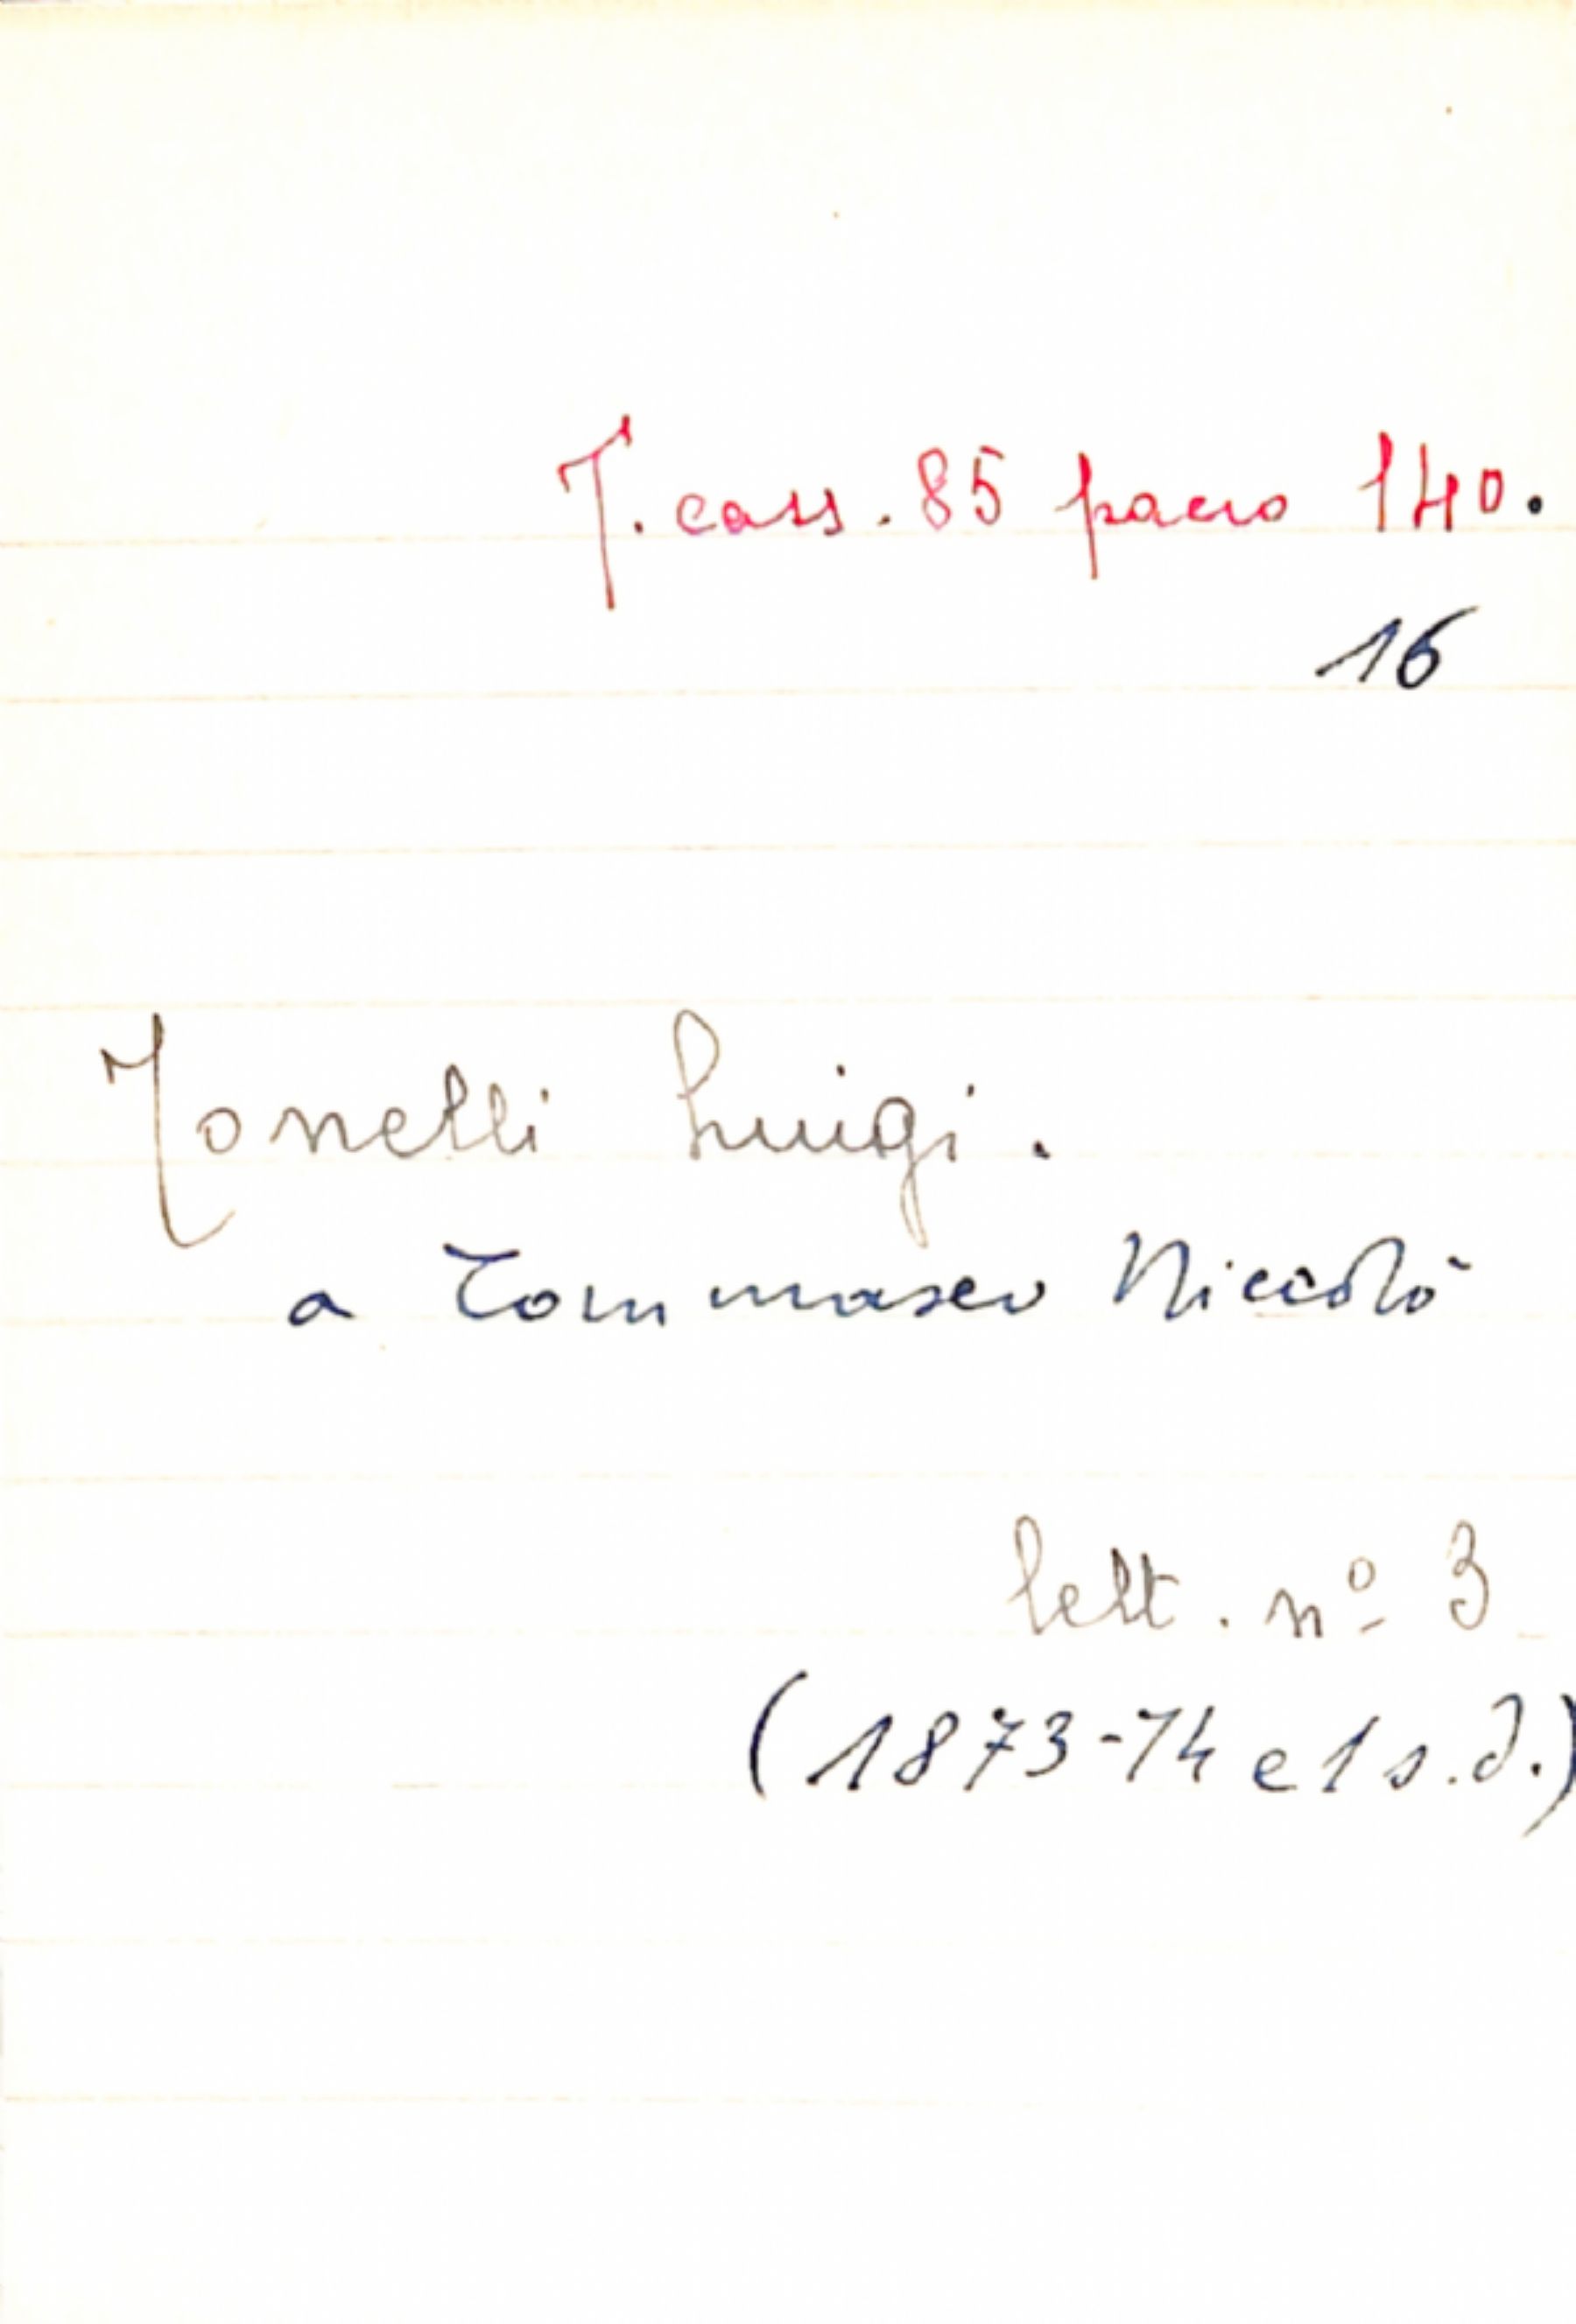 T. cass. 85 pacco 140.
16
Tonelli Luigi.
a Tommaseo Niccolò
lett. nº 3
(1873-74 e 1 s.d.)